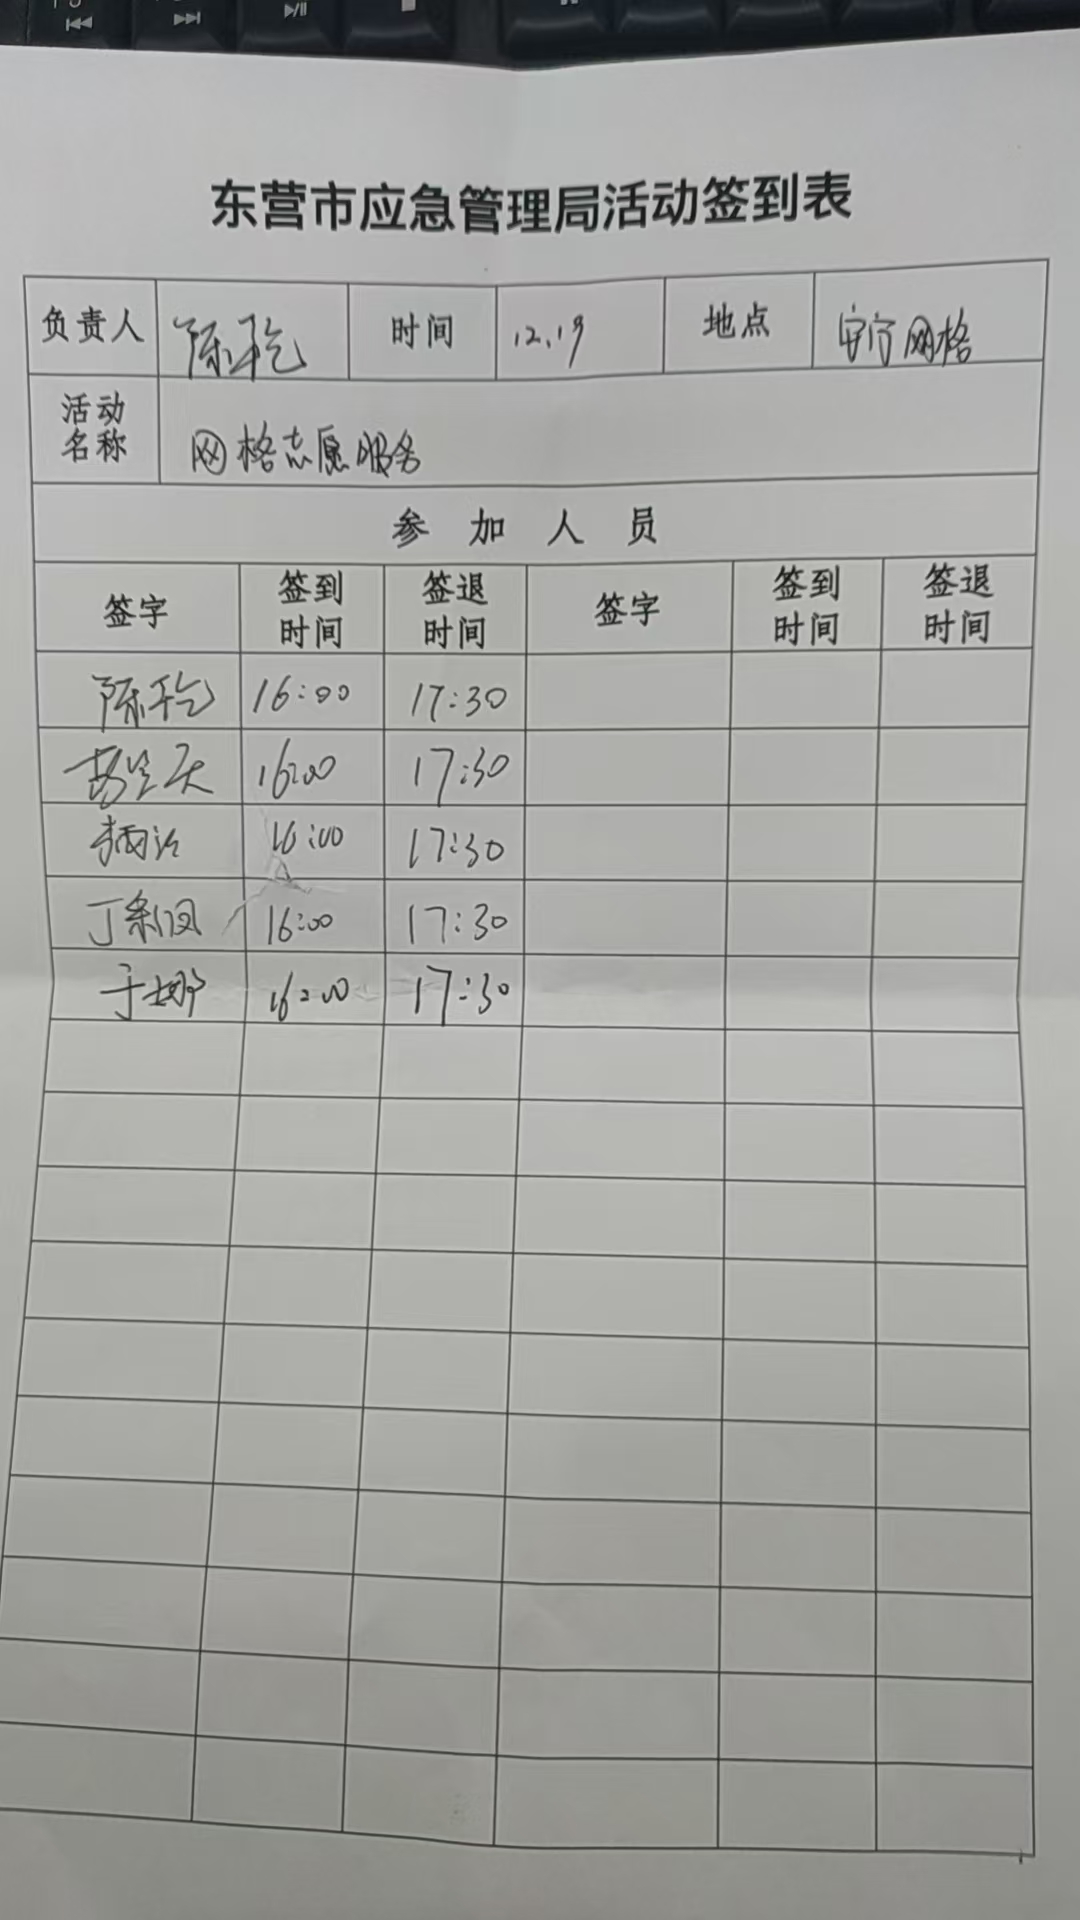 东营市应急管理局活动签到表
负责人 陈 时间 12.19 地点 安宁网格
活动名称 网格志愿服务
参加人员
签字 签到时间 签退时间 签字 签到时间 签退时间
陈 16:00 17:30
16:00 17:30
16:00 17:30
丁 16:00 17:30
于娜 16:00 17:30